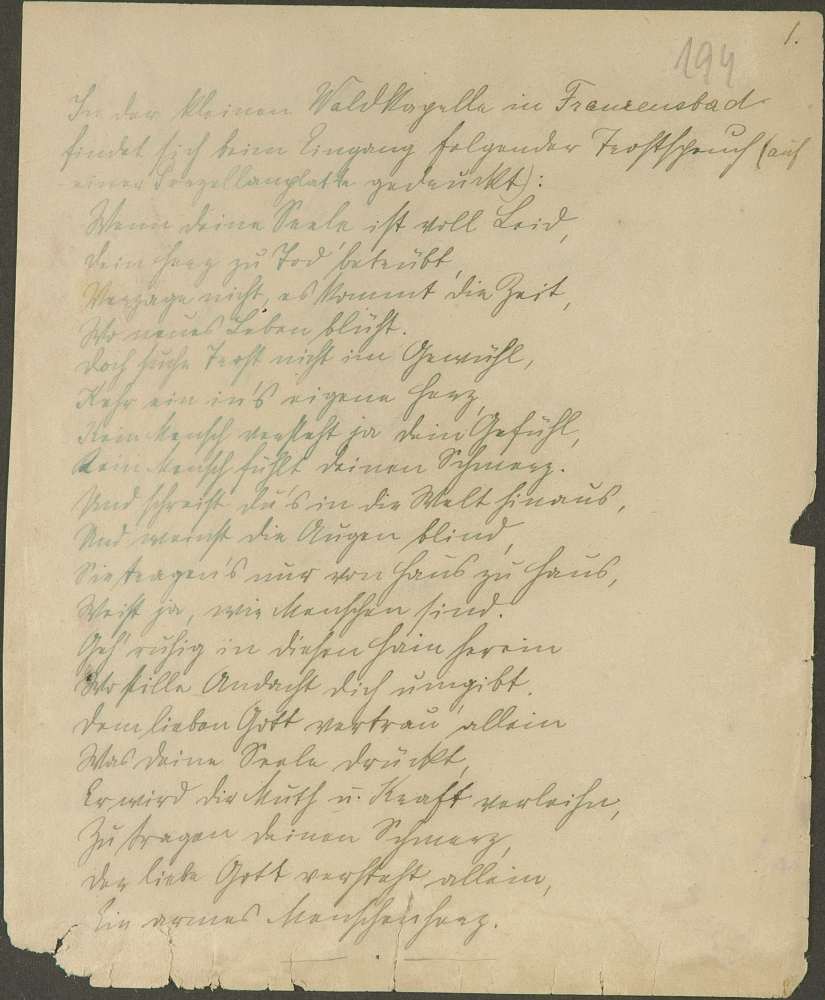 1.
194
In der kleinen Waldkapelle in Franzensbad
findet sich beim Eingang folgender Trostspruch (auf
einer Porzellanplatte gedruckt):
Wenn deine Seele ist voll Leid,
Dein Herz zu Tod' betrübt,
Verzage nicht, es kommt die Zeit,
Wo neues Leben blüht.
Doch suche Trost nicht im Gewühl,
Kehr ein in's eigene Herz,
Kein Mensch versteht ja dein Gefühl,
Kein Mensch fühlt deinen Schmerz.
Und schreist du's in die Welt hinaus,
Und weinst die Augen blind,
Sie tragen's nur von Haus zu Haus,
Weißt ja, wie Menschen sind.
Geh' ruhig in diesen Hain herein
Wo stille Andacht dich umgibt.
Dem lieben Gott vertrau' allein
Was deine Seele drückt,
Er wird dir Muth u. Kraft verleihn,
Zu tragen deinen Schmerz,
Der liebe Gott versteht allein,
Ein armes Menschenherz.